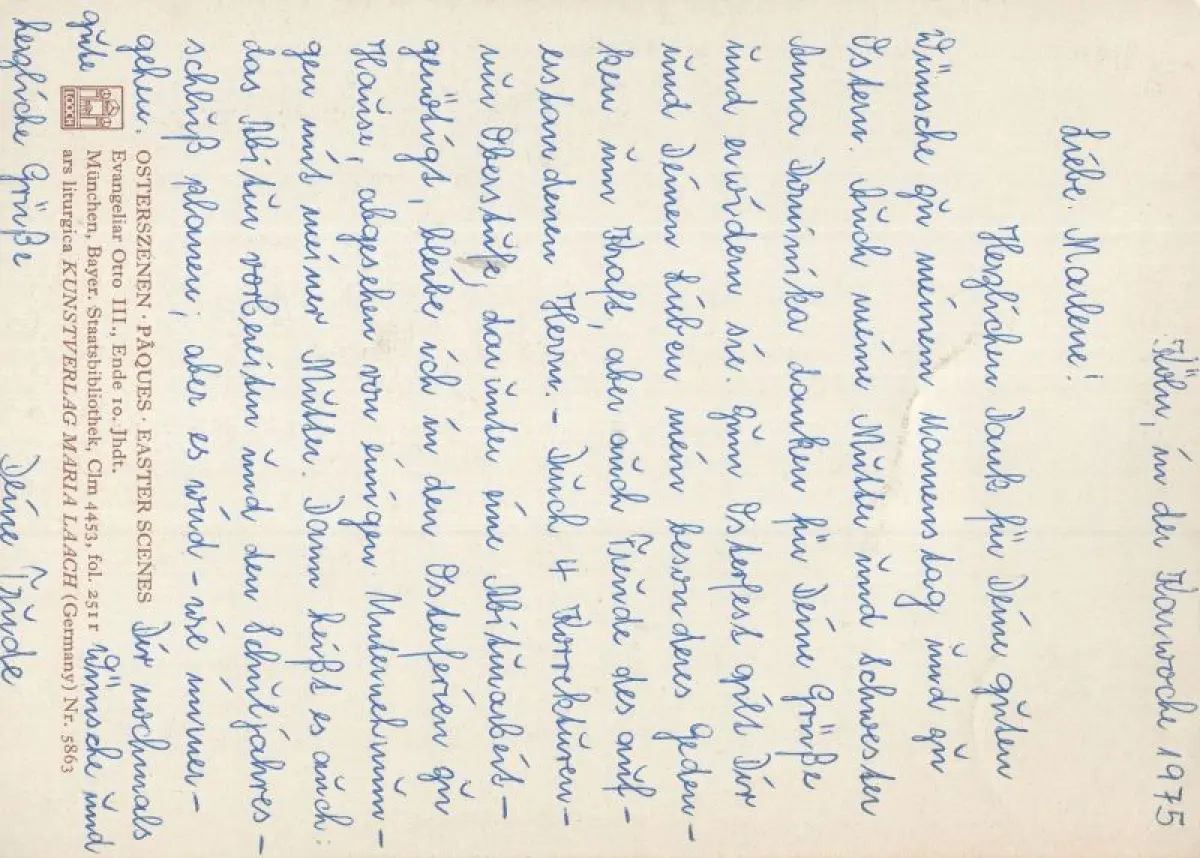 Köln, in der Karwoche 1975
Liebe Marlene!
Herzlichen Dank für Deine guten
Wünsche zu meinem Namenstag und zu
Ostern. Auch meine Mutter und Schwester
Anna Dominika danken für Deine Grüße
und erwidern sie. Zum Osterfest gilt Dir
und Deinen Lieben mein besonderes Geden-
ken um Kraft, aber auch Freude des auf-
erstandenen Herrn. - Durch 4 Korrekturen
nur Oberstufe, darunter eine Abiturarbeit -
genötigt, bleibe ich in den Osterferien zu
Hause, abgesehen von einigen Unternehmun-
gen mit meiner Mutter. Dann heißt es auch:
das Abitur vorbereiten und den Schuljahres-
schluß planen; aber es wird - wie immer -
gehen.
OSTERSZENEN · PÂQUES · EASTER SCENES
Evangeliar Otto III., Ende 10. Jhdt.
München, Bayer. Staatsbibliothek, Clm 4453, fol. 251 r
ars liturgica KUNSTVERLAG MARIA LAACH (Germany) Nr. 5863
Dir nochmals
gute Wünsche und
herzliche Grüße
Deine Trude